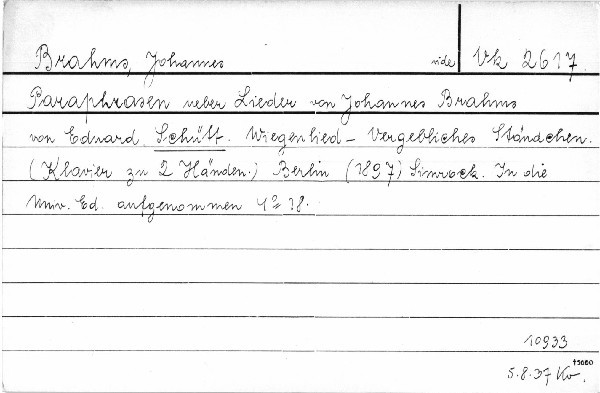 Brahms, Johannes vide Vk 2617.
Paraphrasen ueber Lieder von Johannes Brahms
von Eduard Schütt. Wiegenlied - Vergebliches Ständchen.
(Klavier zu 2 Händen.) Berlin (1897) Simrock. In die
Univ. Ed. aufgenommen 4° 38.
10933
†5000
5.8.37 Kv.